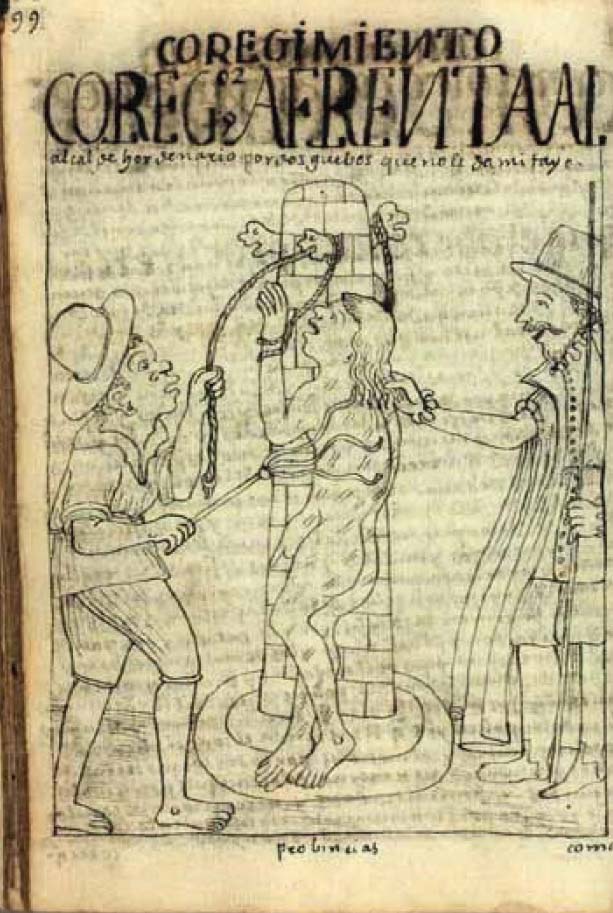 99
COREGIMIENTO
COREG.or AFRENTA AL
alcalde hordenario por dos guebos que no le da mitayo.
provincias
como